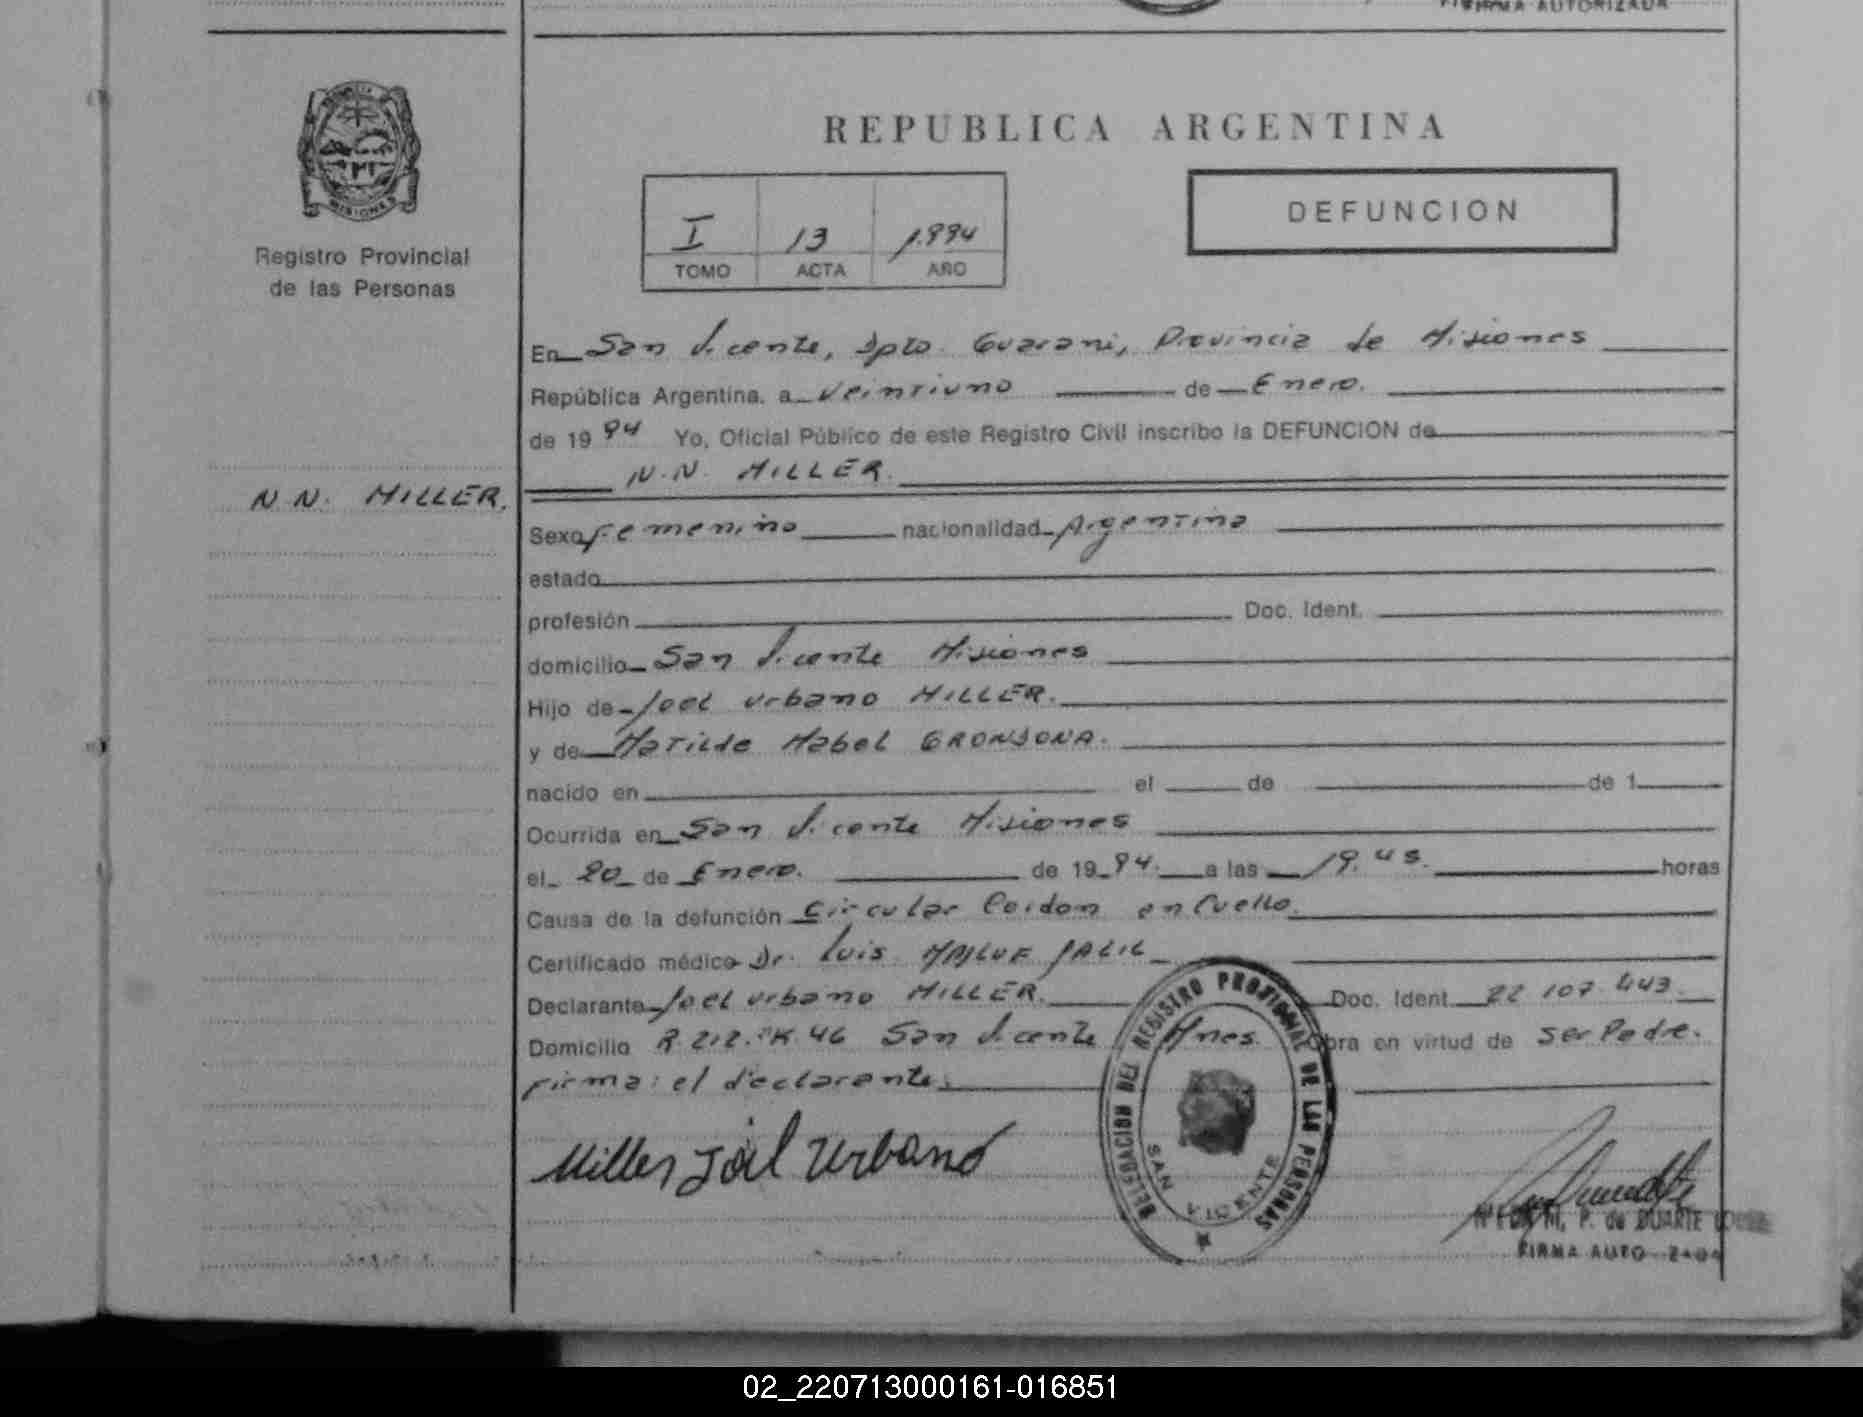 FIRMA AUTORIZADA
MISIONES
Registro Provincial
de las Personas
N.N. MILLER.
REPUBLICA ARGENTINA
I 13 1.994
TOMO ACTA AÑO
DEFUNCION
En San Vicente, Dpto. Guarani, Provincia de Misiones
República Argentina, a Veintiuno de Enero.
de 19 94 Yo, Oficial Público de este Registro Civil inscribo la DEFUNCION de
N.N. MILLER.
Sexo femenino nacionalidad Argentina
estado
profesión Doc. Ident.
domicilio San Vicente Misiones
Hijo de Joel Urbano MILLER.
y de Matilde Mabel GRONDONA.
nacido en el de de 1
Ocurrida en San Vicente Misiones
el 20 de Enero. de 19 94. a las 19.45. horas
Causa de la defunción Circular Cordon en Cuello.
Certificado médico Dr. Luis JALIL
Declarante Joel Urbano MILLER. Doc. Ident. 22 107.443.
Domicilio R.212.PK.46 San Vicente Mnes. Obra en virtud de Ser Padre.
Firma: el declarante.
Miller Joel Urbano
DELEGACION DEL REGISTRO PROVINCIAL DE LAS PERSONAS
SAN VICENTE
M. P. de DUARTE
FIRMA
02_220713000161-016851